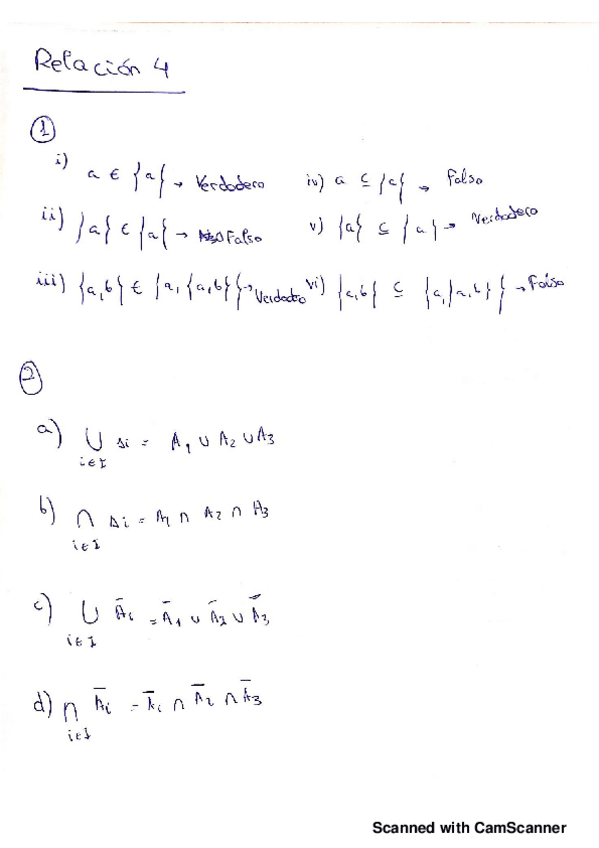 Relación 4
①
i) a ∈ {a} → Verdadero
iv) a ⊆ {a} → Falso
ii) {a} ∈ {a} → Falso
v) {a} ⊆ {a} → Verdadero
iii) {a,b} ∈ {a, {a,b}} → Verdadero
vi) {a,b} ⊆ {a,{a,b}} → Falso
②
a) ⋃ Ai = A₁ ∪ A₂ ∪ A₃
i∈I
b) ⋂ Ai = A₁ ∩ A₂ ∩ A₃
i∈I
c) ⋃ Āi = Ā₁ ∪ Ā₂ ∪ Ā₃
i∈I
d) ⋂ Āi = Āi ∩ Ā₂ ∩ Ā₃
i∈I
Scanned with CamScanner